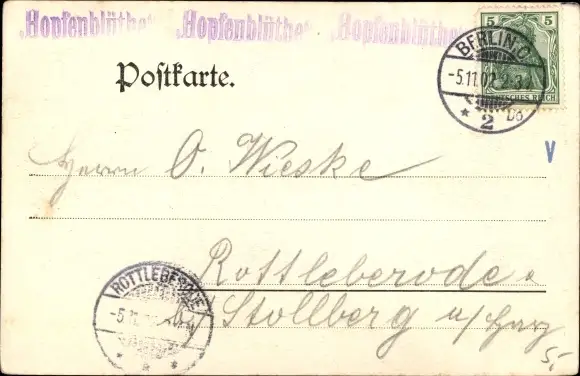 „Hopfenblüthe“ „Hopfenblüthe“ „Hopfenblüthe“
5 5
DEUTSCHES REICH
BERLIN.C
-5.11.02
* 2
Postkarte.
V
Herrn O. Wieske
Rottleberode
by Stollberg a/Harz
ROTTLEBERODE
-5.11.
5,-